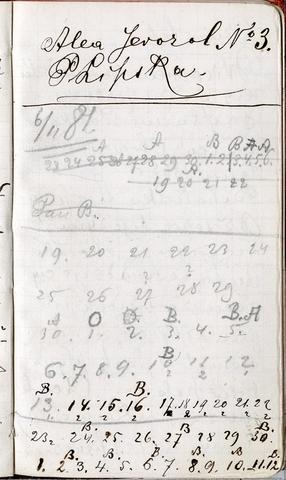 Alea Jerozol № 3.
P Lipska.
6/11 81
A A B B A A
23 24 25 26 27 28 29 30. 1. 2. 3. 4. 5. 6.
A.
19 20 21 22
Pan B.
19. 20 21 22 23 24
2 2
25 26 27 28 29
2
A O B. B. A
30. 1. 2. 3. 4. 5.
B
6. 7. 8. 9. 10 11 12
2 2
B. B.
13. 14. 15. 16. 17. 18 19 20 21 22
B. B. B.
23. 24. 25. 26. 27 28 29 30.
B. B. B. B. B.
1. 2. 3. 4. 5. 6. 7. 8. 9. 10. 11. 12